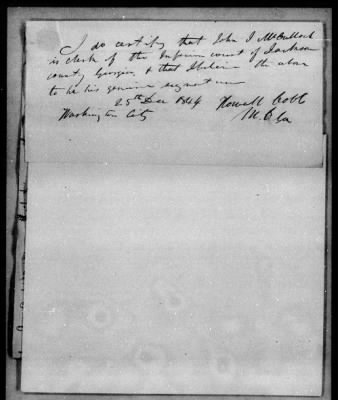 I do certify that John J McCulloch
is clerk of the Inferior court of Jackson
county Georgia & that I believe the above
to be his genuine signature
25th Dec 1844 Howell Cobb
Washington City M. C. Ga